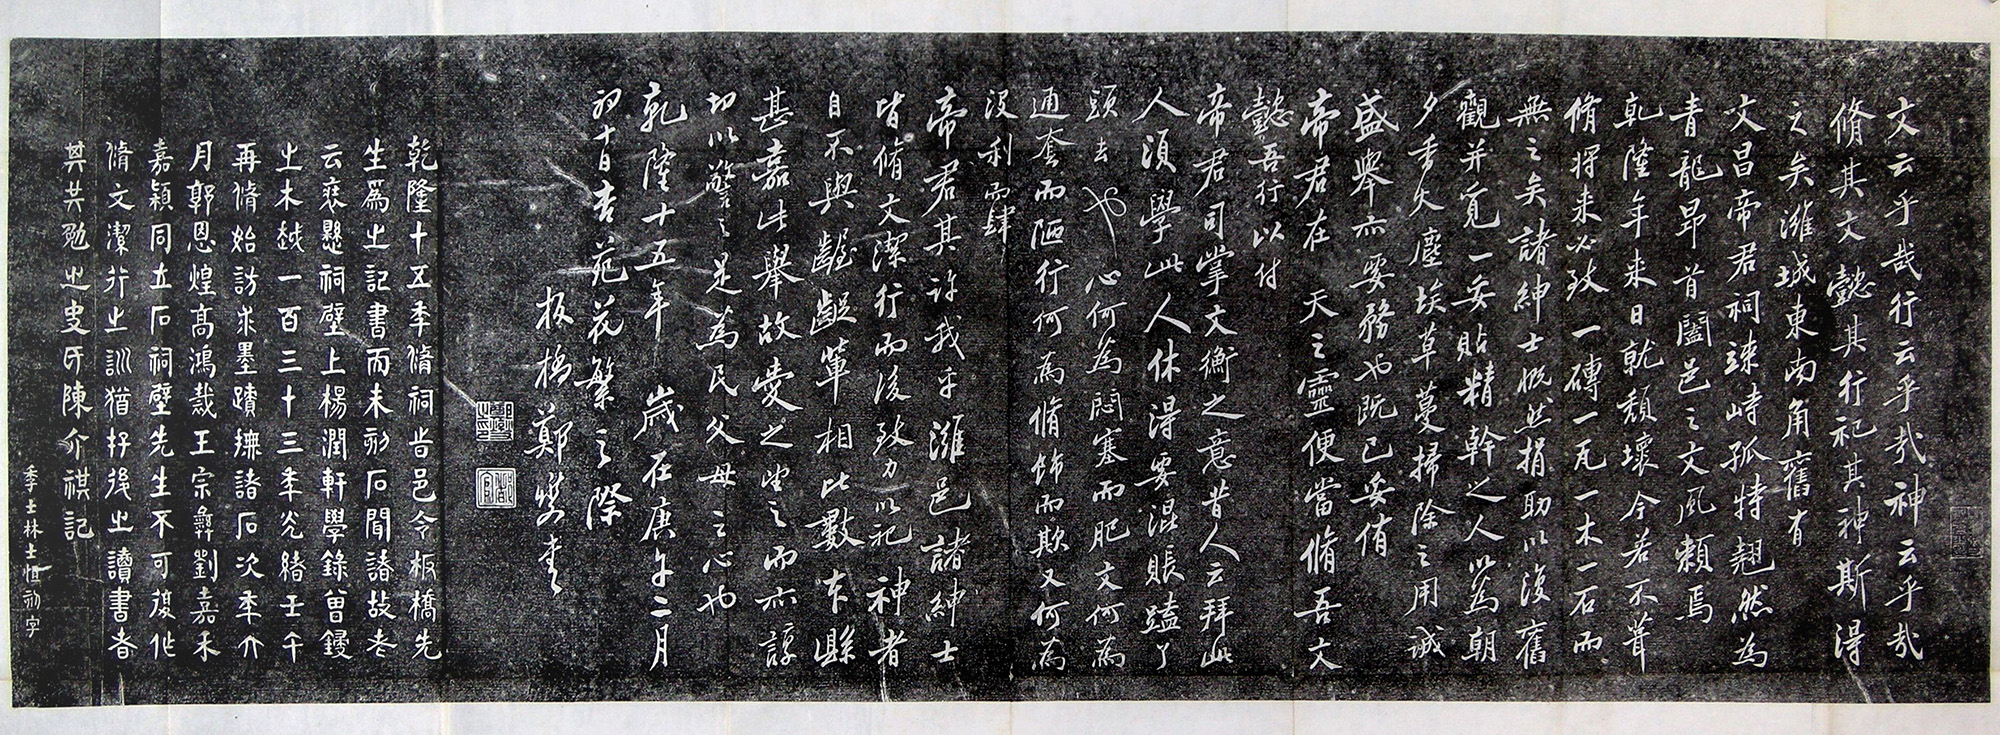 文云乎哉行云乎哉神云乎哉
脩其文懿其行祀其神斯得
之矣濰城東南角舊有
文昌帝君祠竦峙孤特翹然為
青龍昂首闔邑之文風賴焉
乾隆年来日就頽壞今若不葺
脩将来必致一磚一瓦一木一石而
無之矣諸紳士慨然捐助以復舊
觀并覓一妥貼精幹之人以為朝
夕香火塵埃草蔓掃除之用誠
盛舉亦要務也既已妥侑
帝君在天之靈便當脩吾文
懿吾行以付
帝君司掌文衡之意昔人云拜此
人須學此人休得要混賬磕了
頭去也心何為悶塞而肥文何為
通套而陋行何為脩飾而欺又何為
没利而肆
帝君其許我乎濰邑諸紳士
皆脩文潔行而後致力以祀神者
自不與齷齪輩相比數本縣
甚嘉此舉故愛之望之而亦諄
切以警之是為民父母之心也
乾隆十五年歲在庚午二月
初十日杏苑花繁之際
板橋鄭燮書
乾隆十五年脩祠旹邑令板橋先
生爲㞢記書而未刱石聞諸故老
云裝懸祠壁上楊潤軒學錄曾鋟
㞢木越一百三十三年光緒壬午
再脩始訪求墨蹟橅諸石次年六
月郭恩煌高鴻裁王宗彝劉嘉禾
嘉穎同立石祠壁先生不可復作
脩文潔行㞢訓猶存後㞢讀書者
其共勉㞢史氏陳介祺記
季士林士恒刱字